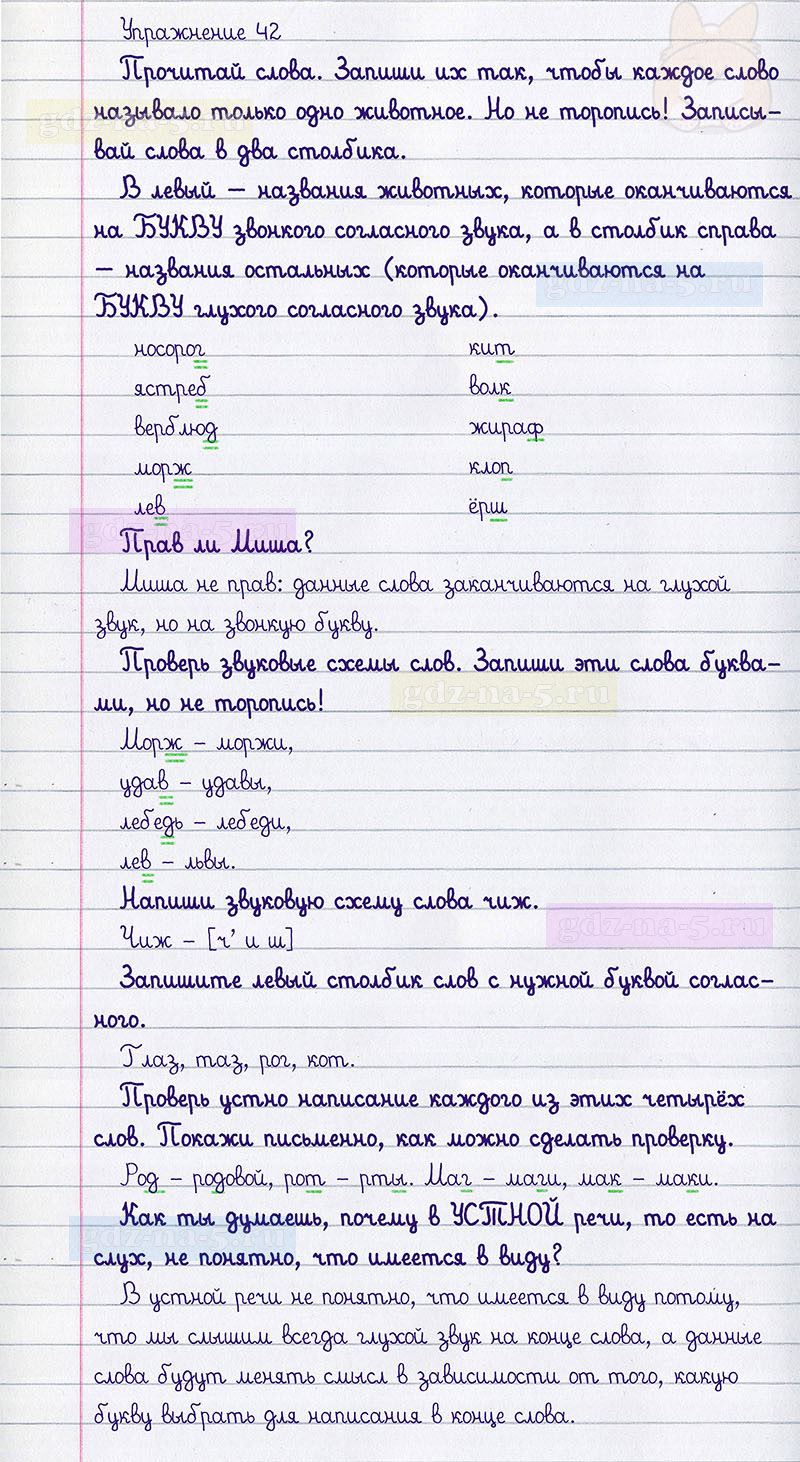 Упражнение 42
Прочитай слова. Запиши их так, чтобы каждое слово
называло только одно животное. Но не торопись! Записы-
вай слова в два столбика.
В левый – названия животных, которые оканчиваются
на БУКВУ звонкого согласного звука, а в столбик справа
– названия остальных (которые оканчиваются на
БУКВУ глухого согласного звука).
носорог кит
ястреб волк
верблюд жираф
морж клоп
лев ёрш
Прав ли Миша?
Миша не прав: данные слова заканчиваются на глухой
звук, но на звонкую букву.
Проверь звуковые схемы слов. Запиши эти слова буква-
ми, но не торопись!
Морж – моржи,
удав – удавы,
лебедь – лебеди,
лев – львы.
Напиши звуковую схему слова чиж.
Чиж – [ч’ и ш]
Запишите левый столбик слов с нужной буквой соглас-
ного.
Глаз, таз, рог, кот.
Проверь устно написание каждого из этих четырёх
слов. Покажи письменно, как можно сделать проверку.
Род – родовой, рот – рты. Маг – маги, мак – маки.
Как ты думаешь, почему в УСТНОЙ речи, то есть на
слух, не понятно, что имеется в виду?
В устной речи не понятно, что имеется в виду потому,
что мы слышим всегда глухой звук на конце слова, а данные
слова будут менять смысл в зависимости от того, какую
букву выбрать для написания в конце слова.
gdz-na-5.ru
gdz-na-5.ru
gdz-na-5.ru
gdz-na-5.ru
gdz-na-5.ru
gdz-na-5.ru